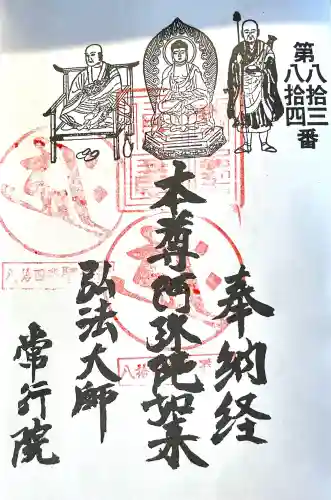 第八拾三
八拾四番
奉納経
本尊阿弥陀如来
弘法大師
常行院